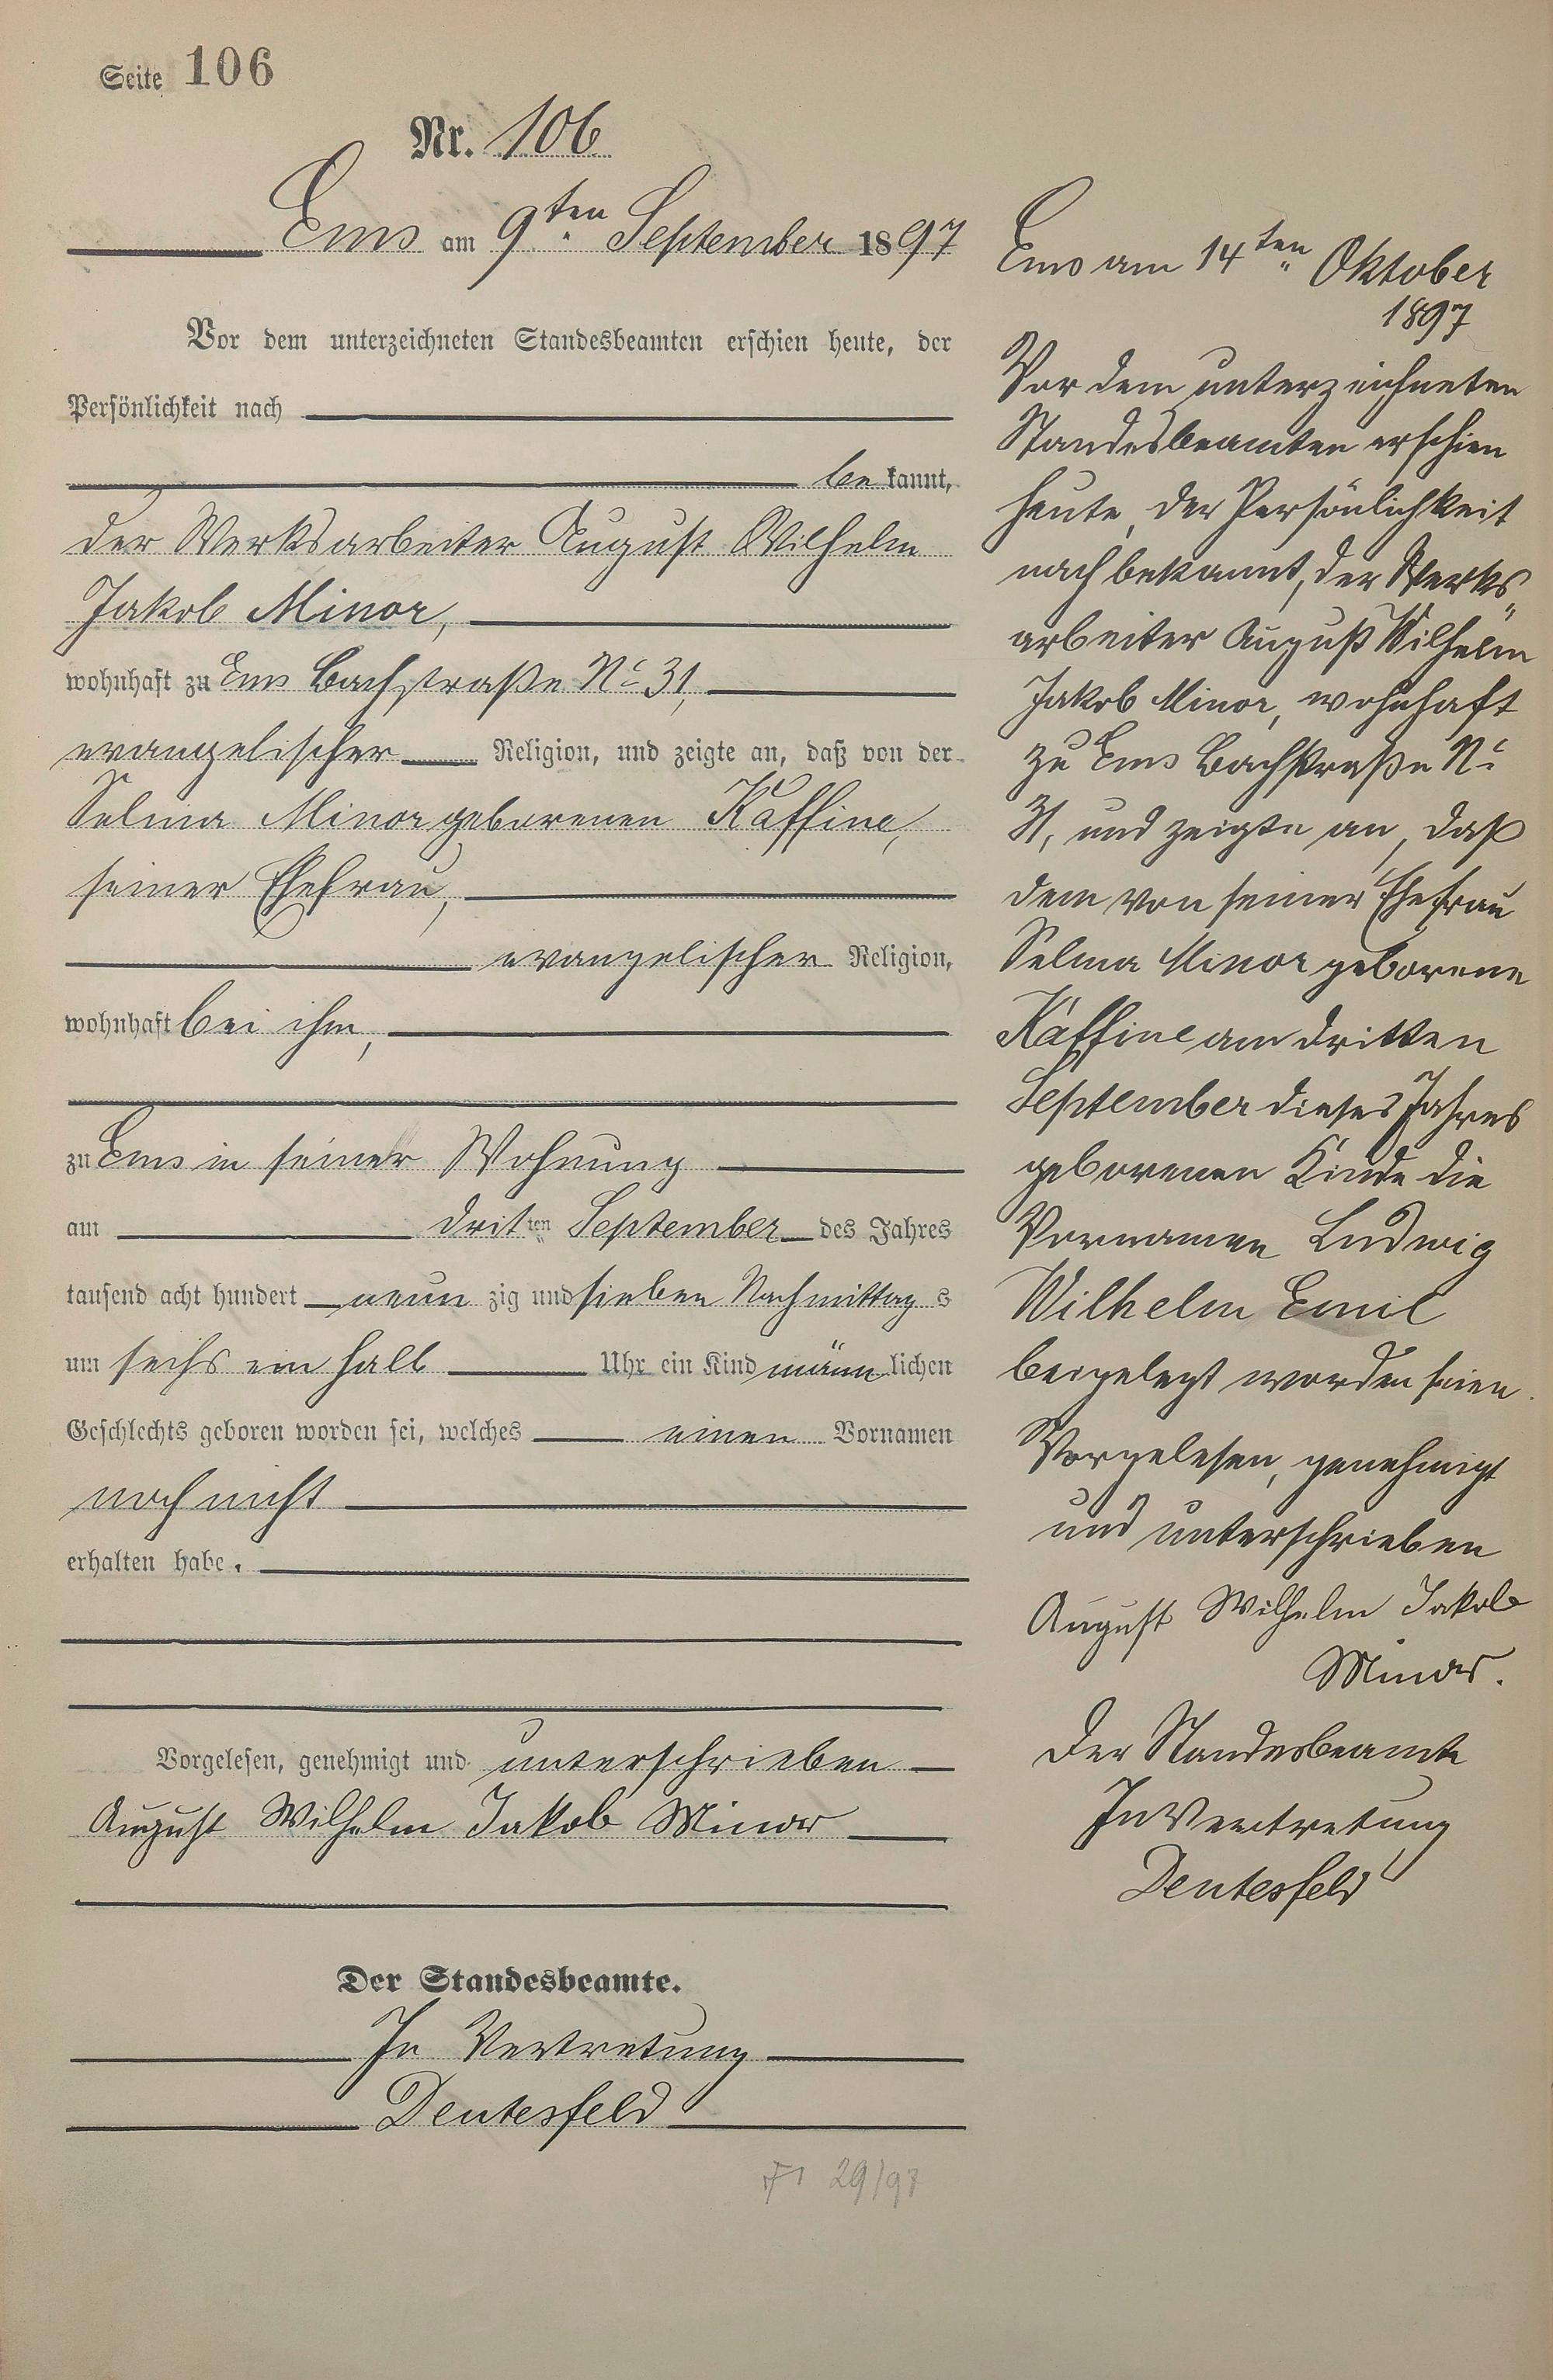 Seite 106
Nr. 106
Ems am 9ten September 1897
Vor dem unterzeichneten Standesbeamten erschien heute, der
Persönlichkeit nach
bekannt,
der Werksarbeiter August Wilhelm
Jakob Minor,
wohnhaft zu Ems Bachstraße No 31,
evangelischer Religion, und zeigte an, daß von der
Selma Minor geborenen Käffine,
seiner Ehefrau,
evangelischer Religion,
wohnhaft bei ihm,
zu Ems in seiner Wohnung
am dritten September des Jahres
tausend acht hundert neunzig und sieben Nachmittags
um sechs ein halb Uhr ein Kind männlichen
Geschlechts geboren worden sei, welches einen Vornamen
noch nicht
erhalten habe.
Vorgelesen, genehmigt und unterschrieben
August Wilhelm Jakob Minor
Der Standesbeamte.
In Vertretung
Deutesfeld
29/97
Ems am 14ten Oktober
1897
Vor dem unterzeichneten
Standesbeamten erschien
heute, der Persönlichkeit
nach bekannt, der Werks„
arbeiter August Wilhelm
Jakob Minor, wohnhaft
zu Ems Bachstraße No
31, und zeigte an, daß
dem von seiner Ehefrau
Selma Minor geborene
Käffine am dritten
September dieses Jahres
geborenen Kinde die
Vornamen Ludwig
Wilhelm Emil
beigelegt worden seien.
Vorgelesen, genehmigt
und unterschrieben
August Wilhelm Jakob
Minor.
Der Standesbeamte
In Vertretung
Deutesfeld